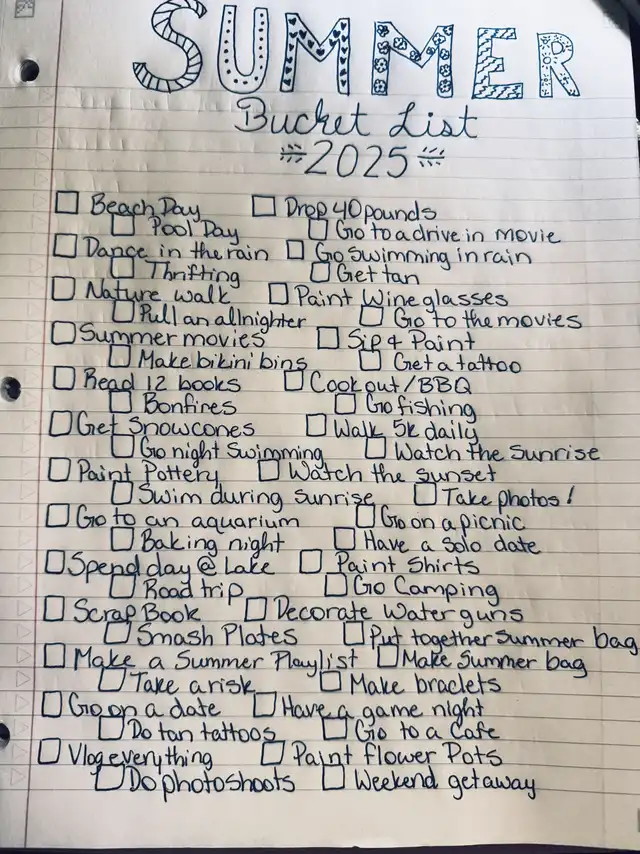 SUMMER
Bucket List
2025
Beach Day Drop 40 pounds
Pool Day Go to a drive in movie
Dance in the rain Go swimming in rain
Thrifting Get tan
Nature walk Paint Wine glasses
Pull an allnighter Go to the movies
Summer movies Sip & Paint
Make bikini bins Get a tattoo
Read 12 books Cookout/BBQ
Bonfires Go fishing
Get Snowcones Walk 5k daily
Go night Swimming Watch the Sunrise
Paint Pottery Watch the sunset
Swim during sunrise Take photos!
Go to an aquarium Go on a picnic
Baking night Have a solo date
Spend day @ Lake Paint Shirts
Road trip Go Camping
Scrap Book Decorate Water guns
Smash Plates Put together summer bag
Make a Summer Playlist Make Summer bag
Take a risk Make braclets
Go on a date Have a game night
Do tan tattoos Go to a Cafe
Vlog everything Paint flower Pots
Do photoshoots Weekend getaway